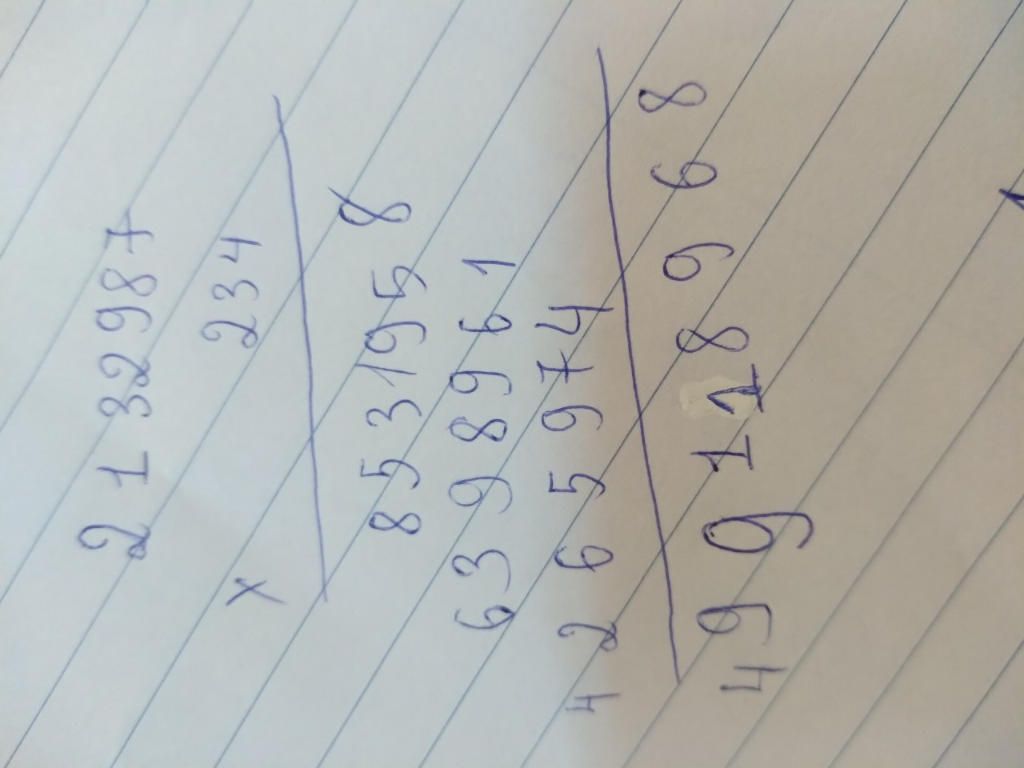 2132987
x 234
8531958
6398961
4265974
499118968